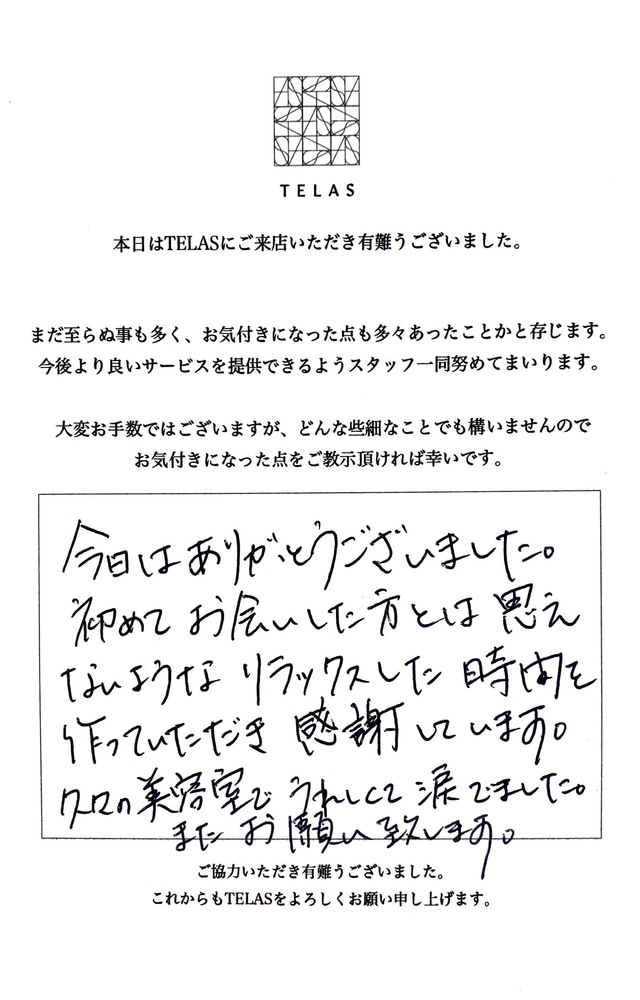 TELAS
本日はTELASにご来店いただき有難うございました。
まだ至らぬ事も多く、お気付きになった点も多々あったことかと存じます。
今後より良いサービスを提供できるようスタッフ一同努めてまいります。
大変お手数ではございますが、どんな些細なことでも構いませんので
お気付きになった点をご教示頂ければ幸いです。
今日はありがとうございました。
初めてお会いした方とは思え
ないようなリラックスした時間を
作っていただき感謝しています。
久々の美容室でうれしくて涙でました。
またお願い致します。
ご協力いただき有難うございました。
これからもTELASをよろしくお願い申し上げます。